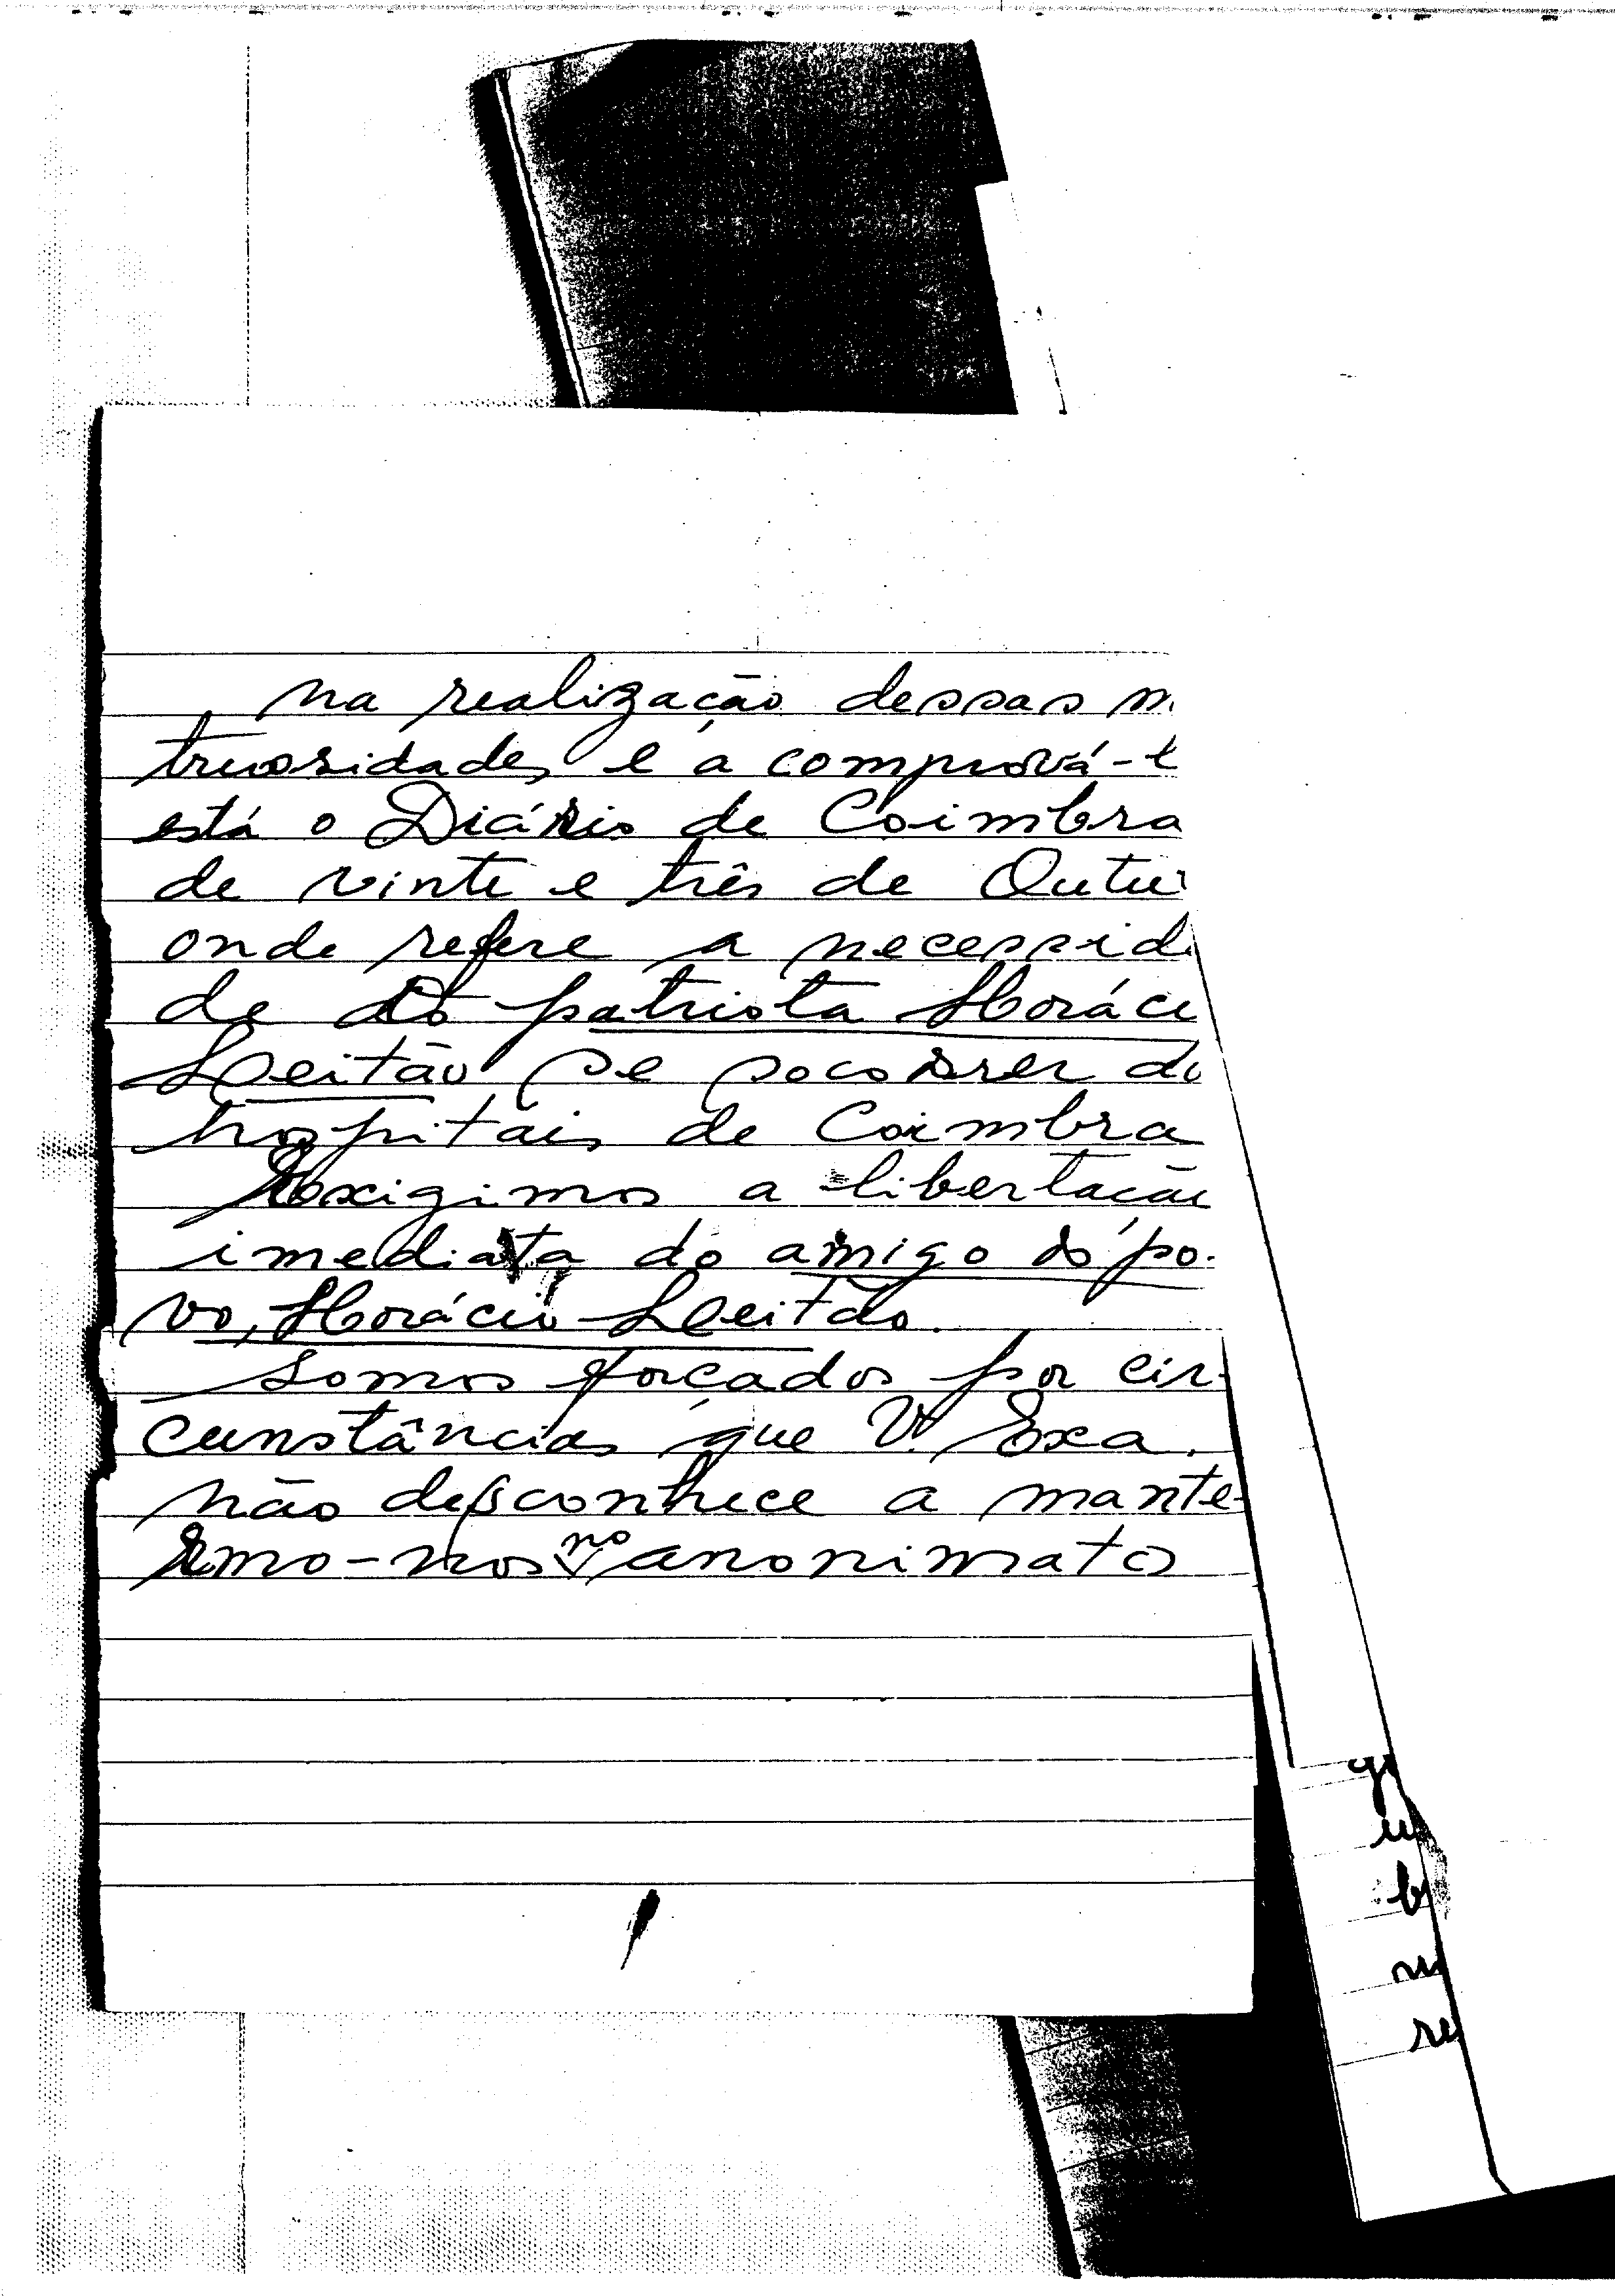 na realização dessas m
truosidades e a comprová-l
está o Diário de Coimbra
de vinte e três de Outu
onde refere a necessida
de do patriota Horáci
Leitão se socorrer do
hospitais de Coimbra
Exigimos a libertação
imediata do amigo do po-
vo, Horácio Leitão.
Somos forçados por cir-
cunstâncias que V. Exa.
não desconhece a mante-
rmo-nos no anonimato
qu
u
b
m
re